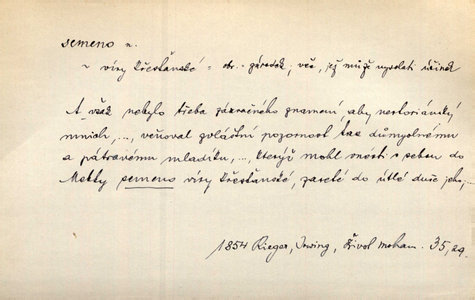 semeno n.
~ víry křesťanské = obr. - zárodek; věc, jež může vyvolati účinek
A však nebylo třeba zázračného znamení aby nestoriánský
mnich, ..., věnoval zvláštní pozornost tak důmyslnému
a pátravému mladíku, ..., kterýž mohl snésti s sebou do
Mekky semeno víry křesťanské, zaseté do útlé duše jeho, ...
1854 Rieger, Irwing, Život moham. 35, 29.